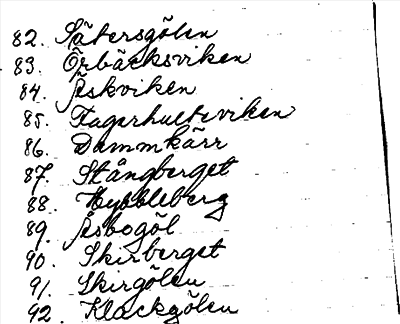 82. Sätersgölen
83. Örbäcksviken
84. Åskviken
85. Fagerhulteviken
86. Dammkärr
87. Stångberget
88. Hybbleberg
89. Åsbogöl
90. Skirberget
91. Skirgölen
92. Klackgölen